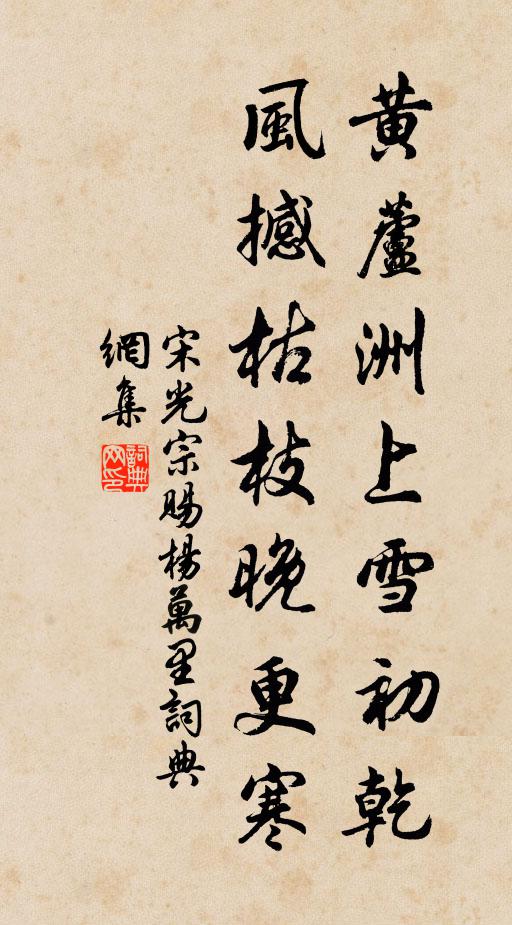 黃蘆洲上雪初乾
風撼枯枝晚更寒
宋光宗賜楊萬里詞典
網集
詞典網印